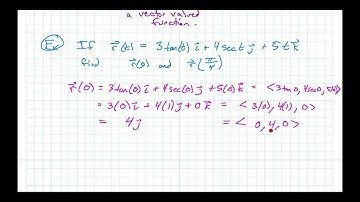 a vector valued
function.
Ex If r⃗(t) = 3 tan(t) i⃗ + 4 sec t j⃗ + 5 t k⃗
find r⃗(0) and r⃗(π/4)
r⃗(0) = 3 tan(0) i⃗ + 4 sec(0) j⃗ + 5(0) k⃗ = < 3 tan 0, 4 sec 0, 5(0) >
= 3(0) i⃗ + 4(1) j⃗ + 0 k⃗ = < 3(0), 4(1), 0 >
= 4 j⃗ = < 0, 4, 0 >